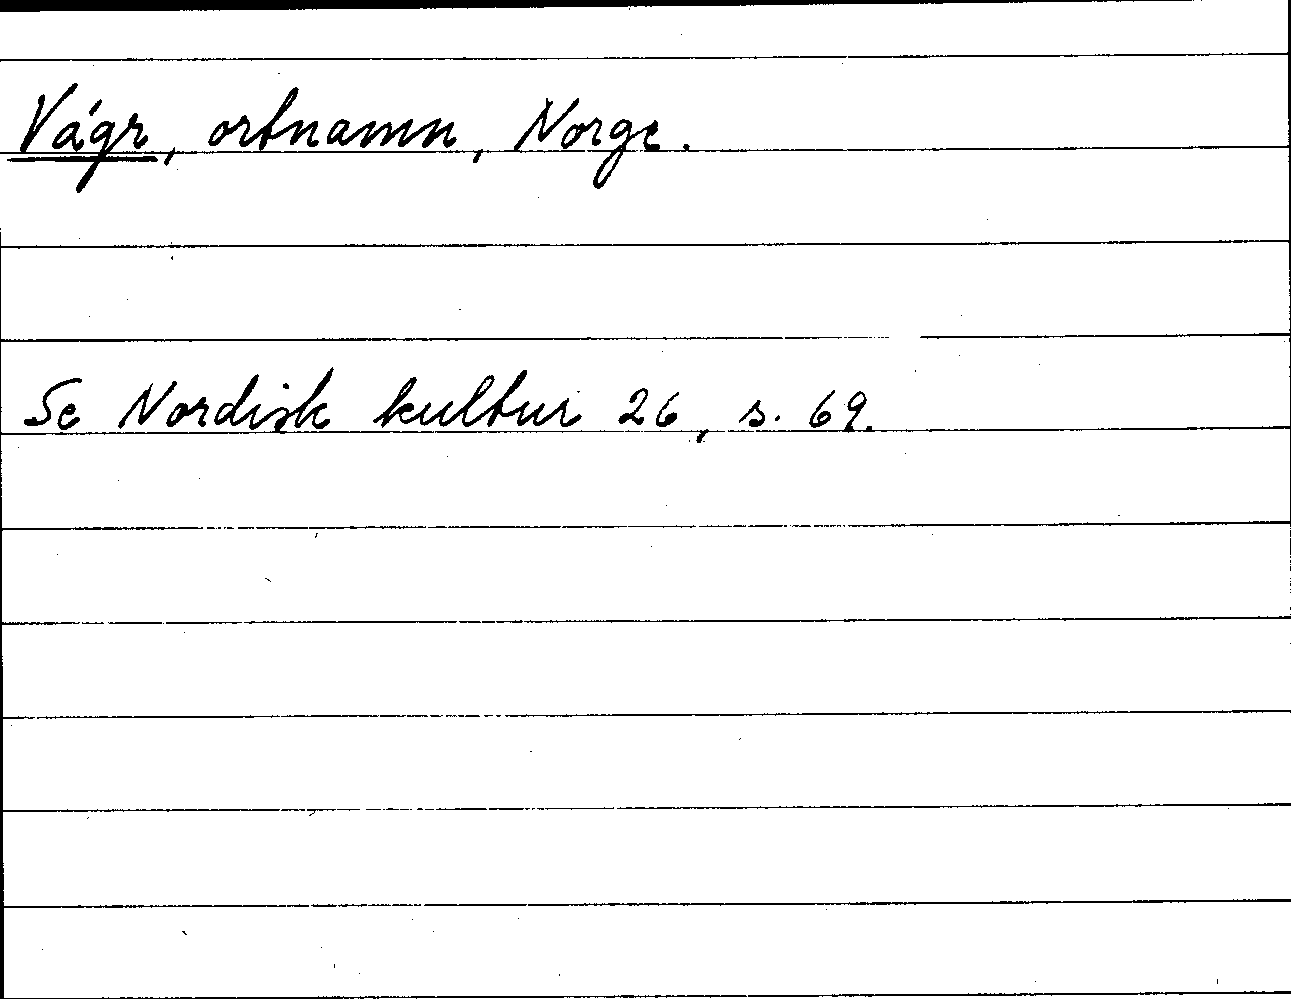 Vágr, ortnamn, Norge.
Se Nordisk kultur 26, s. 69.